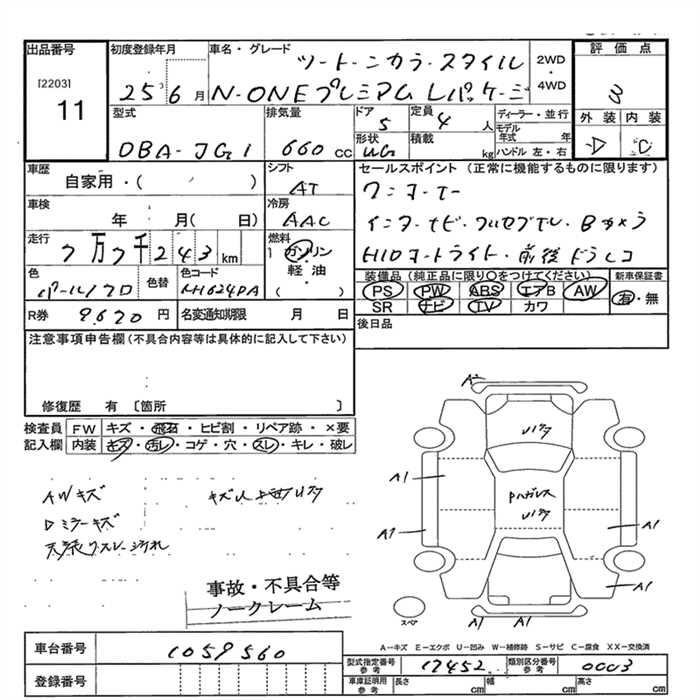 出品番号
[2203]
11
初度登録年月
25 6月
車名・グレード
ツートーンカラースタイル
N-ONEプレミアム Lパッケージ
2WD
・
4WD
評価点
3
外装 内装
D C
型式
DBA-JG1
排気量
660 CC
ドア
5
定員
4 人
形状
積載
kg
ディーラー・並行
モデル年式 年
ハンドル 左・右
車歴
自家用・( )
シフト
AT
セールスポイント (正常に機能するものに限ります)
ワンオーナー
インターナビ・フルセグTV・Bカメラ
HIDオートライト・前後ドラレコ
車検
年 月( 日)
冷房
AAC
走行
7万7千243 km
燃料
ガソリン
軽油
( )
色
パール/クロ
色替
色コード
NH624PA
装備品(純正品に限り○をつけてください)
PS PW ABS エアB AW
SR ナビ TV カワ
新車保証書
有・無
R券 9620 円
名変通知期限 月 日
後日品
注意事項申告欄(不具合内容等は具体的に記入して下さい)
修復歴 有 〔箇所 〕
検査員 FW キズ・飛石・ヒビ割・リペア跡・×要
記入欄 内装 キズ・汚レ・コゲ・穴・スレ・キレ・破レ
AWキズ
Dミラーキズ
事故・不具合等
ノークレーム
A2
A1
A1
A1
A1
A1
A1
A1
スペア
A-キズ E-エクボ U-凹み W-補修跡 S-サビ C-腐食 XX-交換済
車台番号 1059560
登録番号
型式指定番号 参考 17452
類別区分番号 参考 0003
車庫証明用 参考 長さ cm 幅 cm 高さ cm